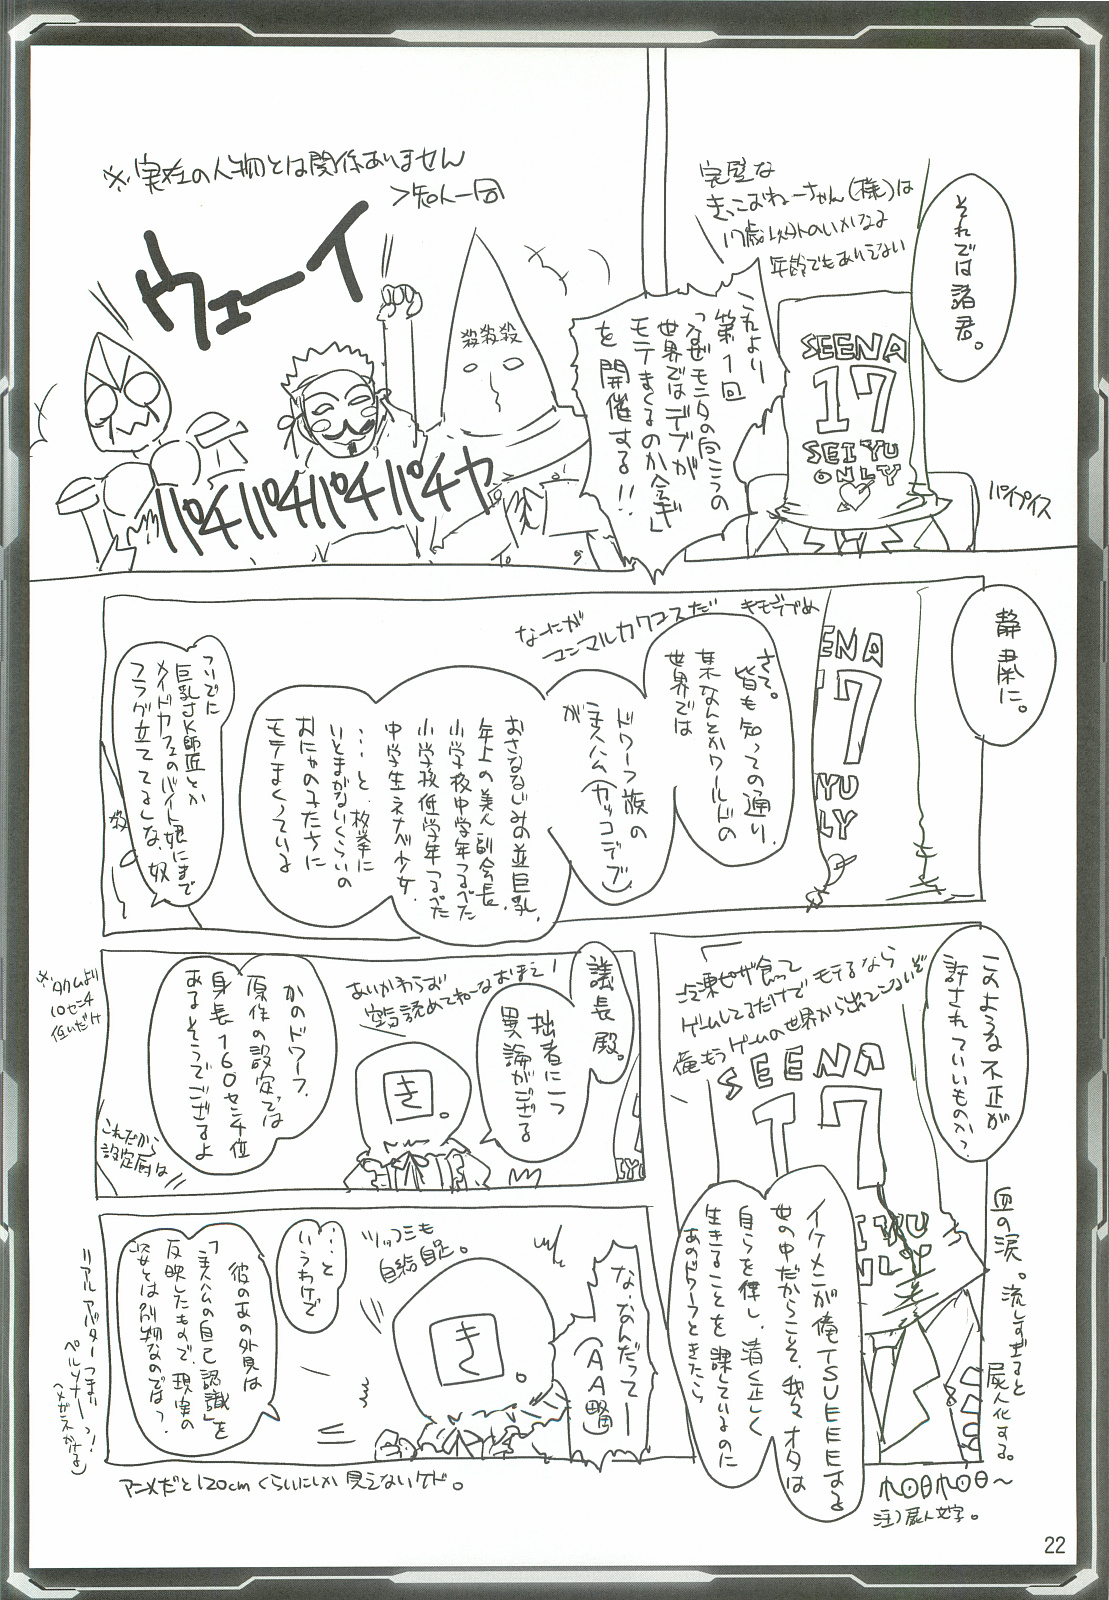 それでは諸君。
完璧な
きっこおねーちゃん(様)は
17歳以外のいかなる
年齢でもありえない
SEENA
17
SEIYU
ONLY
パイプイス
これより
第1回
「なぜモニタの向こうの
世界ではデブが
モテまくるのか会議」
を開催する!!
殺殺殺
※実在の人物とは関係ありません
>知人一同
ウェーイ
パチパチパチパチヤ
静粛に。
ENA
17
IYU
LY
キモデブめ
なーたがマンマルカワユスだ
さて。
皆も知っての通り、
某なんとかワールドの
世界では
ドワーフ族の
主人公(カッコデブ)
が
おさななじみの並巨乳、
年上の美人副会長、
小学校中学年つるぺた
小学校低学年つるぺた
中学生ネナベ少女、
…と、枚挙に
いとまがないくらいの
おにゃのこたちに
モテまくっている
ついでに
巨乳JK師匠とか
メイドカフェのバイト娘にまで
フラグ立ててるしな、奴
殺
このような不正が
許されていいものか?
冷凍ピザ食って
ゲームしてるだけでモテるなら
俺もうゲームの世界から出てこないぞ
SEENA
17
イケメンが俺TSUEEEする
世の中だからこそ、我々オタは
自らを律し、清く正しく
生きることを課しているのに
あのドワーフときたら
血の涙。流しすぎると
屍人化する。
注)屍人文字。
議長殿。
拙者に一つ
異論がござる
あいかわらず
空気読めてねーなおまえ!
き。
かのドワーフ、
原作の設定では
身長160センチ位
あるそうでござるよ
※タクムより
10センチ
低いだけ
これだから
設定厨は
な、なんだってー
(AA略)
き。
ツッコミも
自給自足。
…と
いうわけで
彼のあの外見は
「主人公の自己認識」を
反映したもので、現実の
彼女とは別物なのでは?
リアルアバターつまり
ペルソナーっ!
(メガネかける)
アニメだと120cmくらいにしか見えないケド。
22